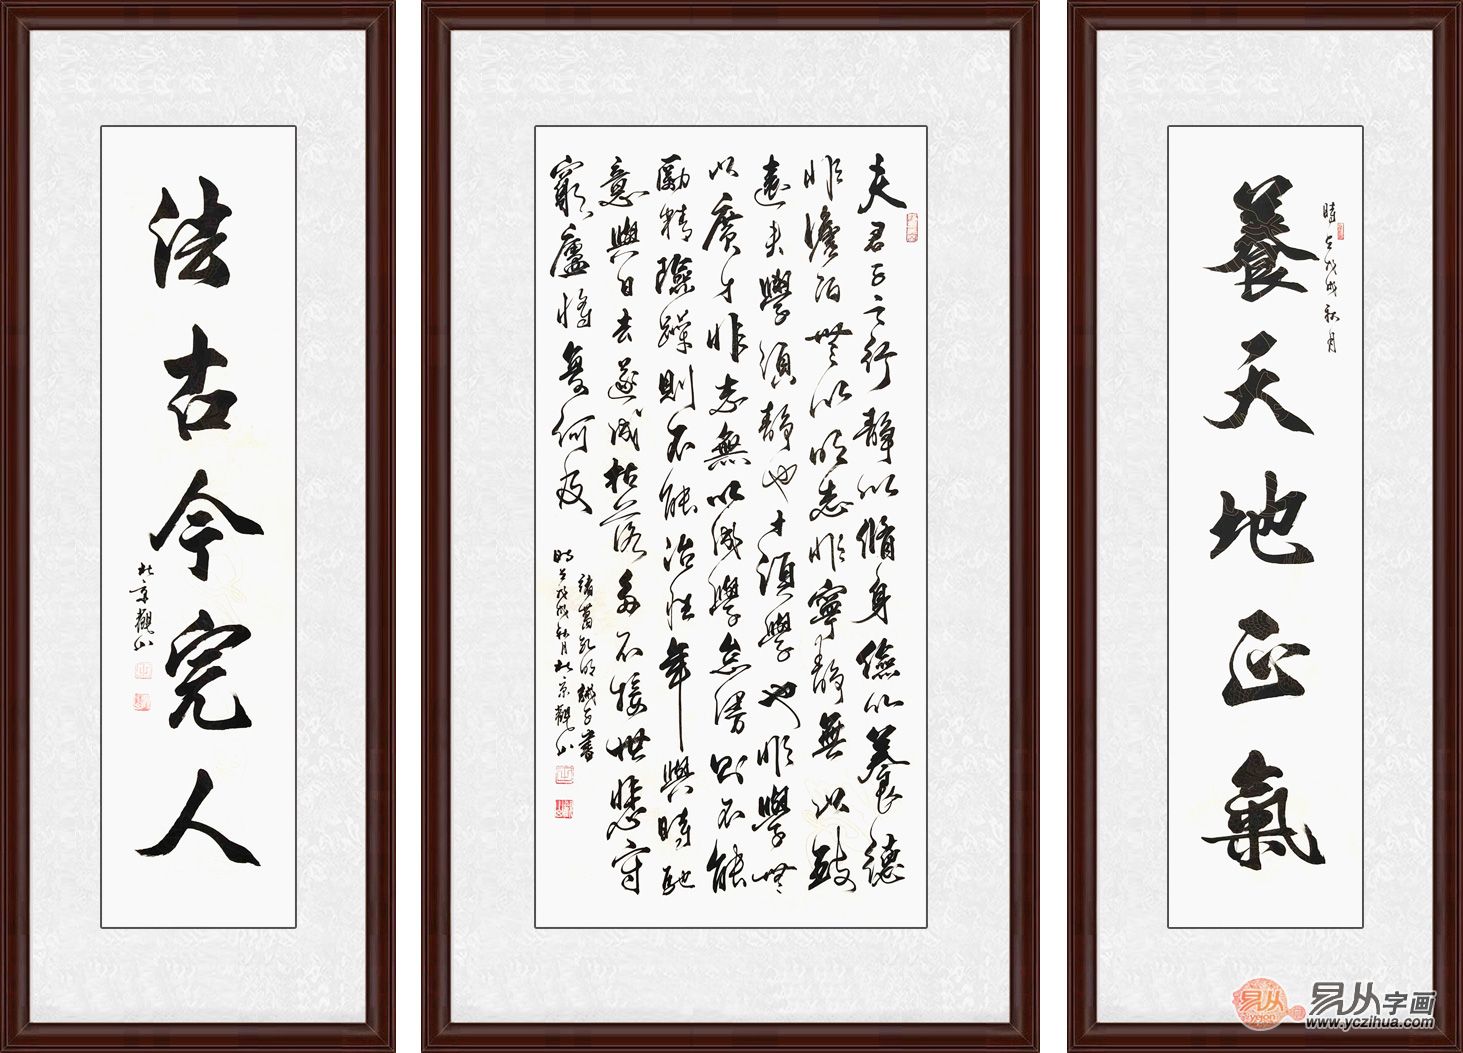 養天地正氣
時戊戌秋月
夫君子之行靜以脩身儉以養德
非澹泊無以明志非寧靜無以致
遠夫學須靜也才須學也非學無
以廣才非志無以成學怠慢則不能
勵精險躁則不能冶性年與時馳
意與日去遂成枯落多不接世悲守
窮廬將復何及
諸葛孔明誡子書
時戊戌秋月北京觀山
法古今完人
北京觀山
易从 yczion
易从字画
www.yczihua.com